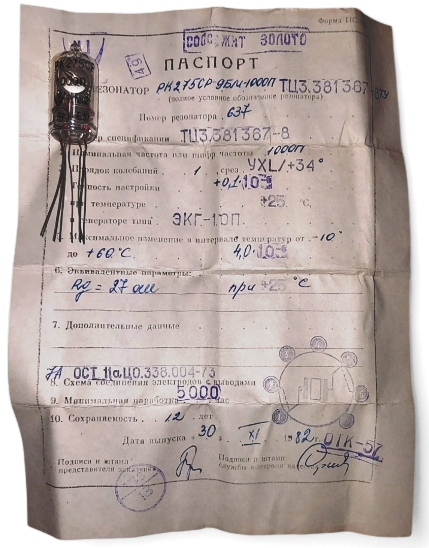 Форма
СОДЕРЖИТ ЗОЛОТО
ПАСПОРТ
РЕЗОНАТОР РК275СР-9БМ-1000П ТЦ3.381367-8ТУ
(полное условное обозначение резонатора)
Номер резонатора 637
спецификации ТЦ3.381367-8
Номинальная частота или шифр частоты 1000П
Порядок колебаний 1 срез УХL/+34°
настройки +0,1·10-5
температуре +25 °С,
генераторе типа ЭКГ-1.0П.
Максимальное изменение в интервале температур от -10°
до +60°С. 4,0·10-5
6. Эквивалентные параметры:
Rд = 27 ом при +25 °С
7. Дополнительные данные
ОСТ 11аЦ0.338.004-73
8. Схема соединения электродов с выводами
9. Минимальная наработка 5000 час
10. Сохраняемость 12 лет
Дата выпуска «30» XI 1982 г. ОТК-57
Подписи и штамп Подписи и штамп
представителя заказчика службы контроля